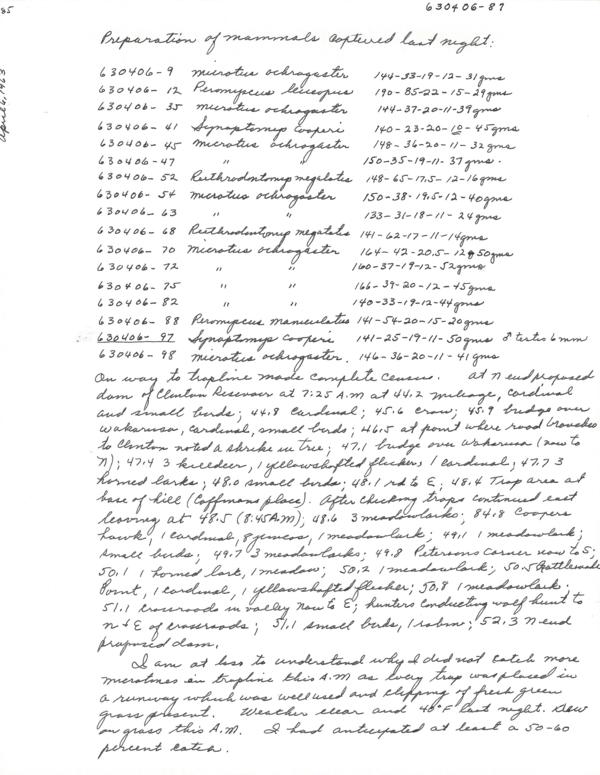 630406-87
85
April 6, 1963
Preparation of mammals captured last night:
630406-9 microtus ochrogaster 144-33-19-12-31gms
630406-12 Peromyscus leucopus 190-85-22-15-29gms
630406-35 microtus ochrogaster 144-37-20-11-39gms
630406-41 Synaptomys cooperi 140-23-20-10-45gms
630406-45 microtus ochrogaster 148-36-20-11-32gms
630406-47 " " 150-35-19-11-37gms.
630406-52 Reithrodontomys megalotis 148-65-17.5-12-16gms
630406-54 microtus ochrogaster 150-38-19.5-12-40gms
630406-63 " " 133-31-18-11-24gms
630406-68 Reithrodontomys megalotis 141-62-17-11-14gms
630406-70 Microtus ochrogaster 164-42-20.5-12-50gms
630406-72 " " 160-37-19-12-52gms
630406-75 " " 166-39-20-12-45gms
630406-82 " " 140-33-19-12-44gms
630406-88 Peromyscus maniculatus 141-54-20-15-20gms
630406-97 Synaptomys cooperi 141-25-19-11-50gms ♂ testis 6mm
630406-98 microtus ochrogaster. 146-36-20-11-41gms
On way to trapline made complete census. at N end proposed
dam of Clinton Reservoir at 7:25 A.M at 44.2 mileage, cardinal
and small birds; 44.8 cardinal; 45.6 crow; 45.9 bridge over
Wakarusa, cardinal, small birds; 46.5 at point where road branches
to Clinton noted a shrike in tree; 47.1 bridge over Wakarusa (now to
N); 47.4 3 killdeer, 1 yellowshafted flicker, 1 cardinal; 47.7 3
horned larks; 48.0 small birds; 48.1 rd to E; 48.4 Trap area at
base of hill (Coffmans place). After checking traps continued east
leaving at 48.5 (8:45A.M); 48.6 3 meadowlarks; 84.8 Coopers
hawk, 1 cardinal, 8 juncos, 1 meadowlark; 49.1 1 meadowlark;
small birds; 49.7 3 meadowlarks; 49.8 Petersons Corner now to S;
50.1 1 horned lark, 1 meadow; 50.2 1 meadowlark; 50.5 Rattlesnake
Point, 1 cardinal, 1 yellowshafted flicker; 50.8 1 meadowlark.
51.1 crossroads in valley now to E; hunters conducting wolf hunt to
N & E of crossroads; 51.1 small birds, 1 robin; 52.3 N end
proposed dam.
I am at loss to understand why I did not catch more
microtines in trapline this A.M as every trap was placed in
a runway which was well used and clipping of fresh green
grass present. Weather clear and 40°F last night. Dew
on grass this A.M. I had anticipated at least a 50-60
percent catch.